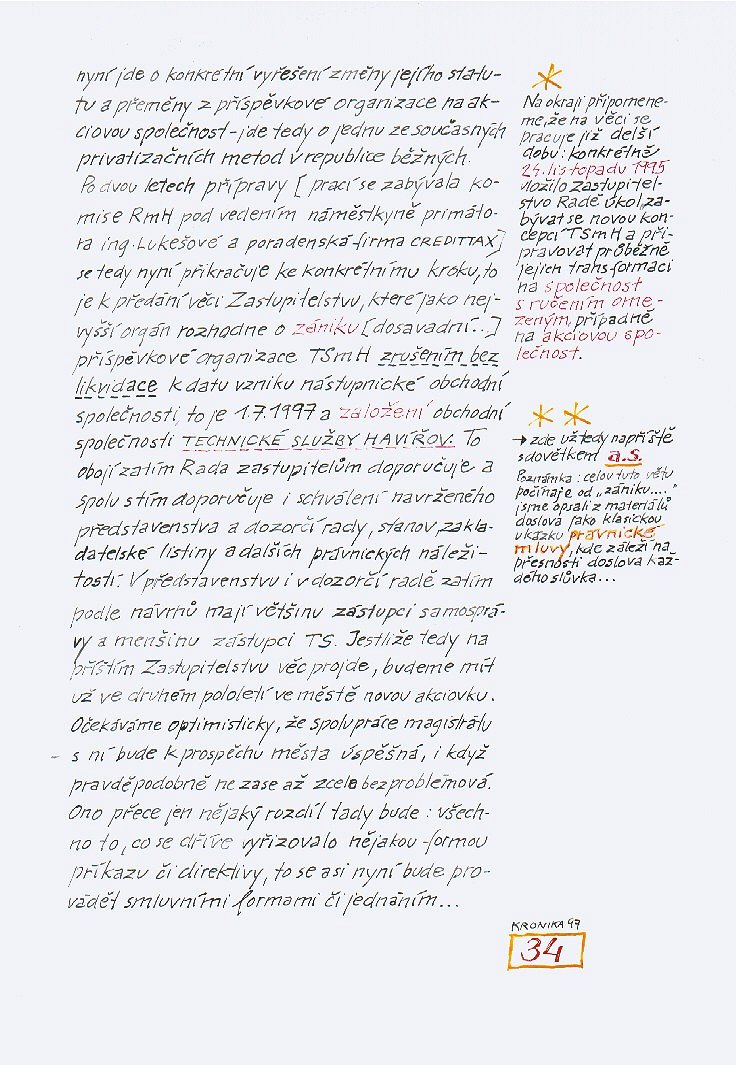 nyní jde o konkrétní vyřešení změny jejího statu-
tu a přeměny z příspěvkové organizace na ak-
ciovou společnost - jde tedy o jednu ze současných
privatizačních metod v republice běžných.
Po dvou letech přípravy [ prací se zabývala ko-
mise RmH pod vedením náměstkyně primáto-
ra ing. Lukešové a poradenská firma CREDITTAX]
se tedy nyní přikračuje ke konkrétnímu kroku, to
je k předání věci Zastupitelstvu, které jako nej-
vyšší orgán rozhodne o zániku [dosavadní..]
příspěvkové organizace TSmH zrušením bez
likvidace k datu vzniku nástupnické obchodní
společnosti, to je 1.7.1997 a založení obchodní
společnosti TECHNICKÉ SLUŽBY HAVÍŘOV. To
obojí zatím Rada zastupitelům doporučuje a
spolu s tím doporučuje i schválení navrženého
představenstva a dozorčí rady, stanov, zakla-
datelské listiny a dalších právnických náleži-
tostí. V představenstvu i v dozorčí radě zatím
podle návrhů mají většinu zástupci samosprá-
vy a menšinu zástupci TS. Jestliže tedy na
příštím Zastupitelstvu věc projde, budeme mít
už ve druhém pololetí ve městě novou akciovku.
Očekáváme optimisticky, že spolupráce magistrátu
s ní bude k prospěchu města úspěšná, i když
pravděpodobně ne zase až zcela bezproblémová.
Ono přece jen nějaký rozdíl tady bude: všech-
no to, co se dříve vyřizovalo nějakou formou
příkazu či direktivy, to se asi nyní bude pro-
vádět smluvními formami či jednáním...
*
Na okraji připomene-
me, že na věci se
pracuje již delší
dobu: konkrétně
24. listopadu 1995
uložilo Zastupitel-
stvo Radě úkol, za-
bývat se novou kon-
cepcí TSmH a při-
pravovat průběžně
jejich transformaci
na společnost
s ručením ome-
zeným, případně
na akciovou spo-
lečnost.
* *
→ zde už tedy napříště
s dovětkem a.s.
Poznámka: celou tuto větu
počínaje od „zániku...."
jsme opsali z materiálů
doslova jako klasickou
ukázku právnické
mluvy, kde záleží na
přesnosti doslova kaž-
dého slůvka...
KRONIKA 97
34